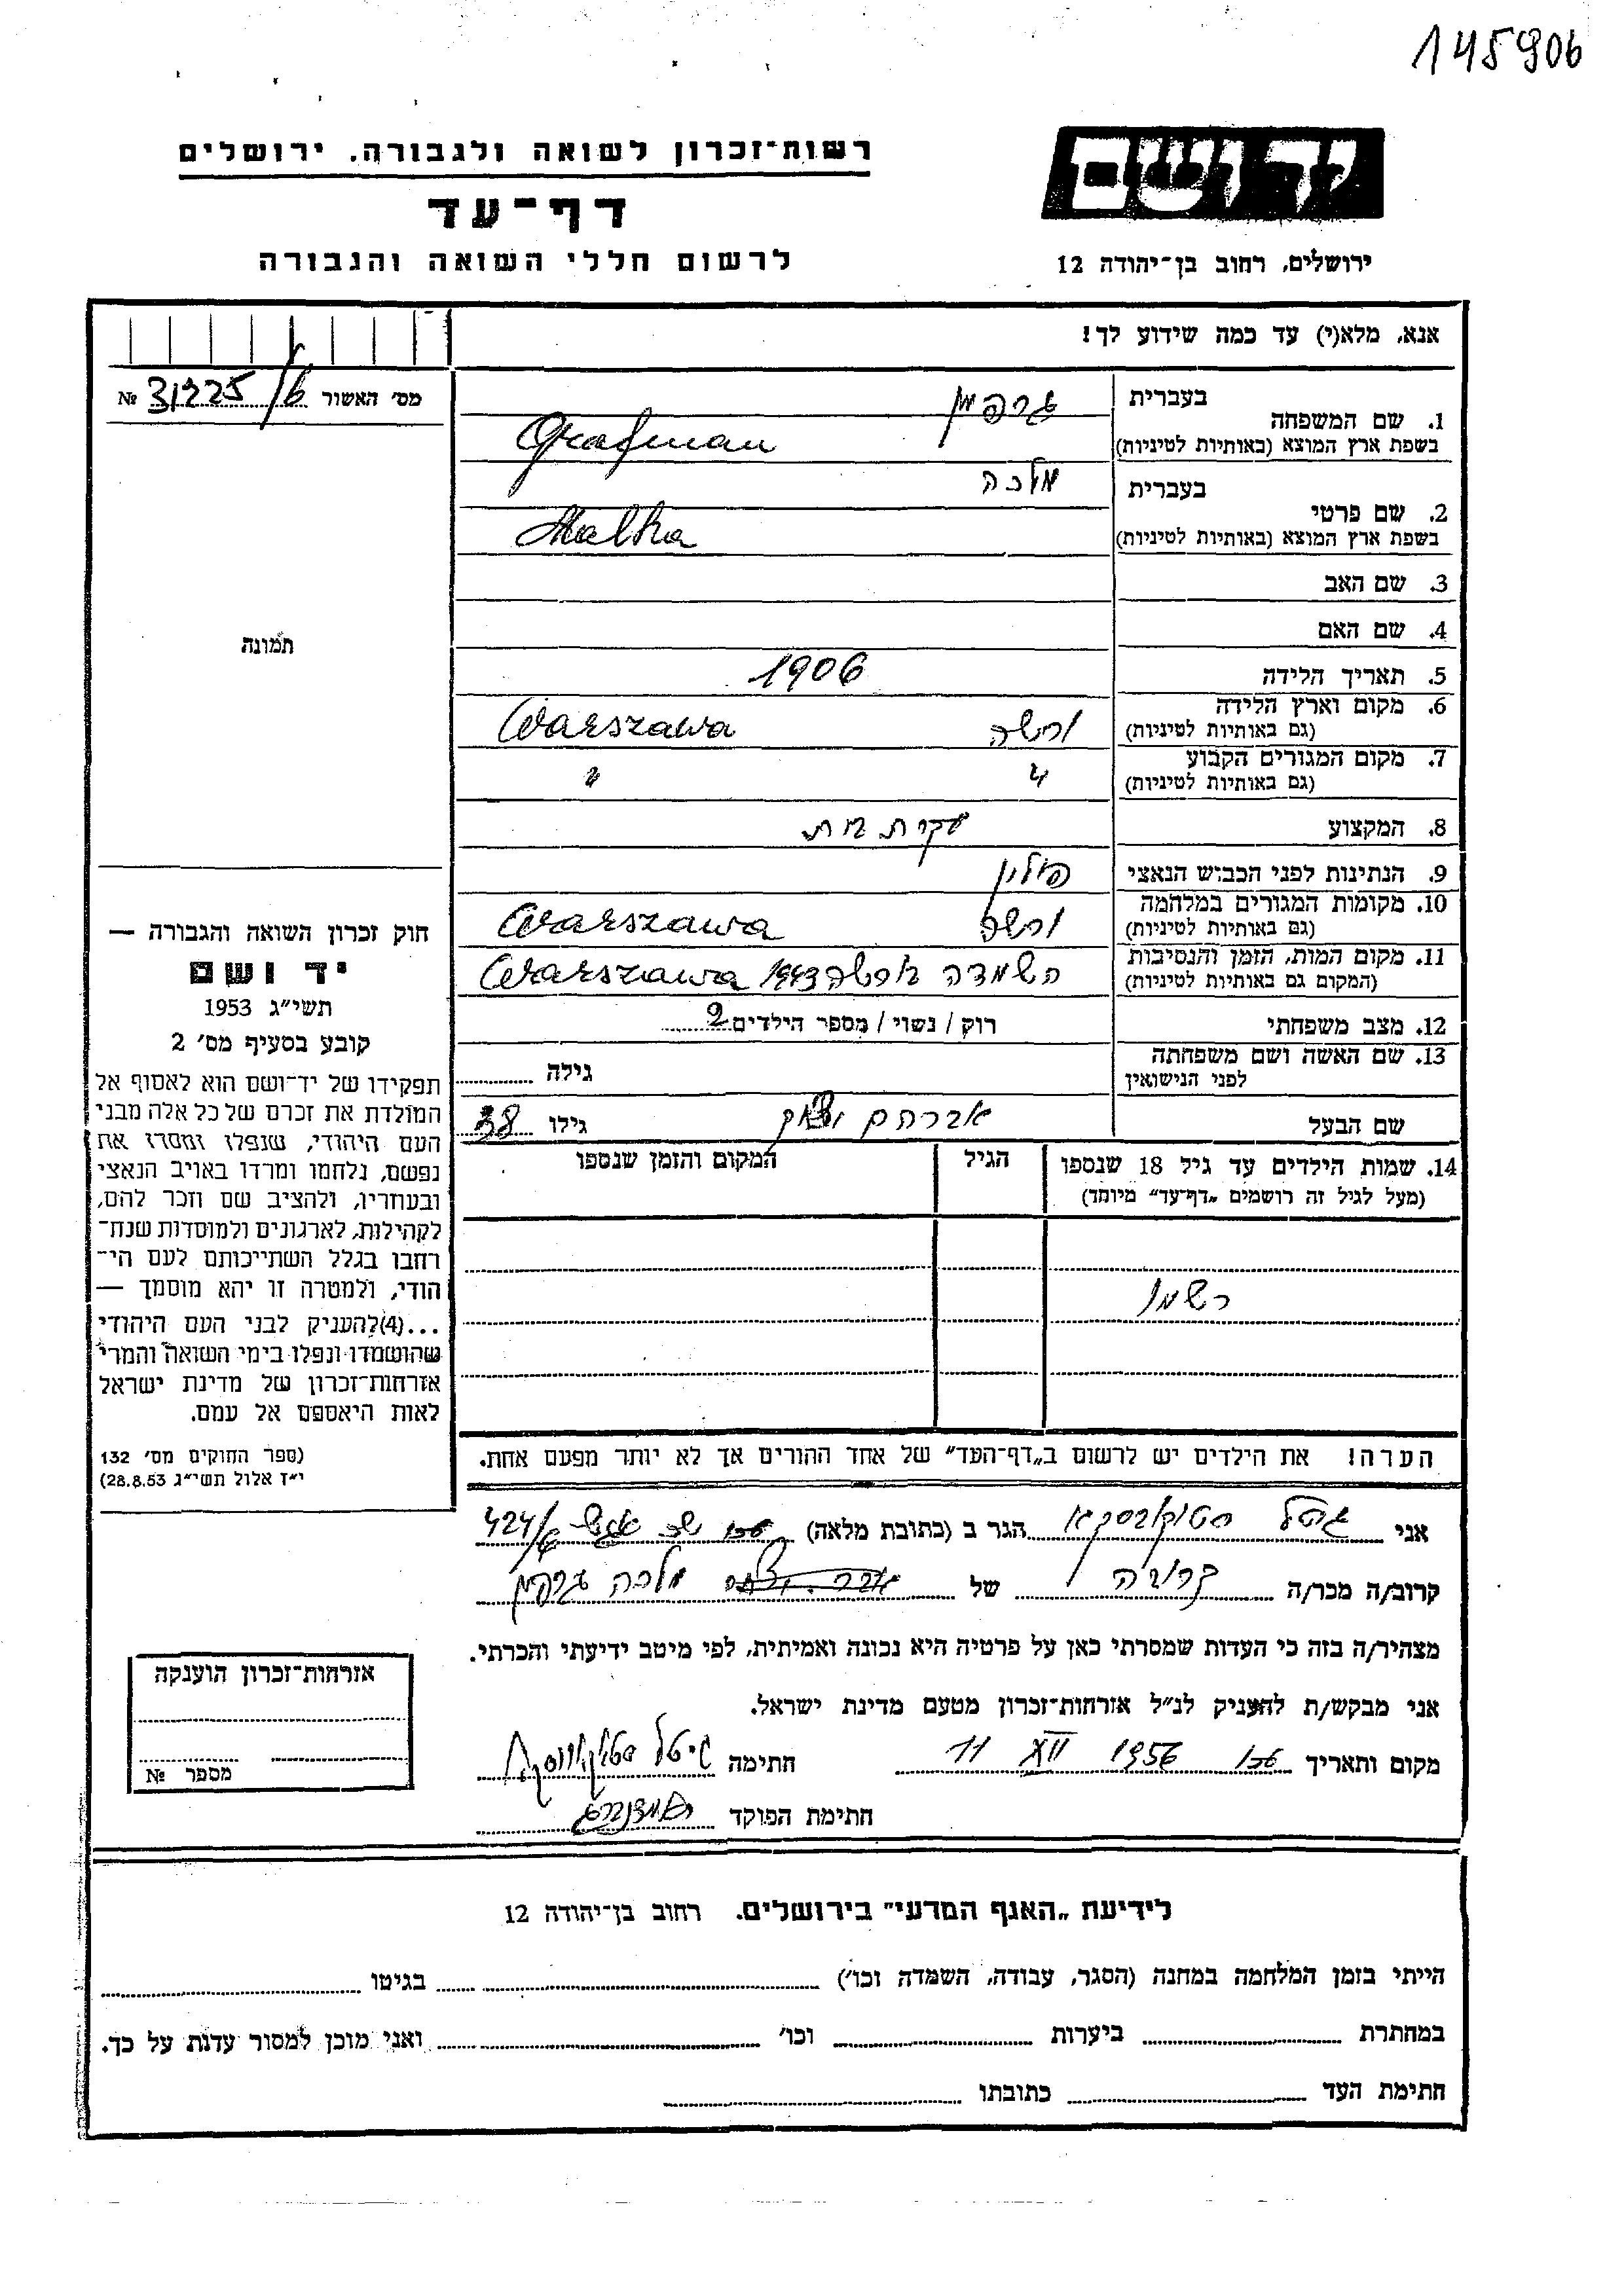 145906
רשות־זכרון לשואה ולגבורה, ירושלים
יד ושם
דף־עד
לרשום חללי השואה והגבורה
ירושלים, רחוב בן־יהודה 12
אנא, מלא(י) עד כמה שידוע לך!
מס׳ האשור № 31225/6
בעברית גרפמן
1. שם המשפחה
בשפת ארץ המוצא (באותיות לטיניות) Grafman
בעברית מלכה
2. שם פרטי
בשפת ארץ המוצא (באותיות לטיניות) Malka
3. שם האב
4. שם האם
5. תאריך הלידה 1906
6. מקום וארץ הלידה
(גם באותיות לטיניות) ורשה Warszawa
7. מקום המגורים הקבוע
(גם באותיות לטיניות) " "
8. המקצוע עקרת בית
9. הנתינות לפני הכבוש הנאצי פולין
10. מקומות המגורים במלחמה
(גם באותיות לטיניות) ורשה Warszawa
11. מקום המות, הזמן והנסיבות
(המקום גם באותיות לטיניות) השמדה ורשה 1943 Warszawa
12. מצב משפחתי רוק / נשוי / מספר הילדים 2
13. שם האשה ושם משפחתה
לפני הנישואין גילה
שם הבעל אברהם יצחק גילו 38
14. שמות הילדים עד גיל 18 שנספו הגיל המקום והזמן שנספו
(מעל לגיל זה רושמים „דף־עד” מיוחד)
רשמו
הערה! את הילדים יש לרשום ב„דף־העד” של אחד ההורים אך לא יותר מפעם אחת.
תמונה
חוק זכרון השואה והגבורה —
יד ושם
תשי״ג 1953
קובע בסעיף מס׳ 2
תפקידו של יד־ושם הוא לאסוף אל
המולדת את זכרם של כל אלה מבני
העם היהודי, שנפלו ומסרו את
נפשם, נלחמו ומרדו באויב הנאצי
ובעוזריו, ולהציב שם וזכר להם,
לקהילות, לארגונים ולמוסדות שנח־
רחבו בגלל השתייכותם לעם הי־
הודי, ולמטרה זו יהא מוסמך —
...(4)להעניק לבני העם היהודי
שהושמדו ונפלו בימי השואה והמרי
אזרחות־זכרון של מדינת ישראל
לאות היאספם אל עמם.
(ספר החוקים מס׳ 132
י״ז אלול תשי״ג 28.8.53)
אני גיטל הגר ב (כתובת מלאה) עכו 424/6
קרוב/ה מכר/ה קרובה של מלכה גרפמן
מצהיר/ה בזה כי העדות שמסרתי כאן על פרטיה היא נכונה ואמיתית, לפי מיטב ידיעתי והכרתי.
אני מבקש/ת להעניק לנ״ל אזרחות־זכרון מטעם מדינת ישראל.
מקום ותאריך עכו 1956 XII 11 חתימה גיטל
חתימת הפוקד
אזרחות־זכרון הוענקה
מספר №
לידיעת „האגף המדעי” בירושלים, רחוב בן־יהודה 12
הייתי בזמן המלחמה במחנה (הסגר, עבודה, השמדה וכו׳) בגיטו
במחתרת ביערות וכו׳ ואני מוכן למסור עדות על כך.
חתימת העד כתובתו